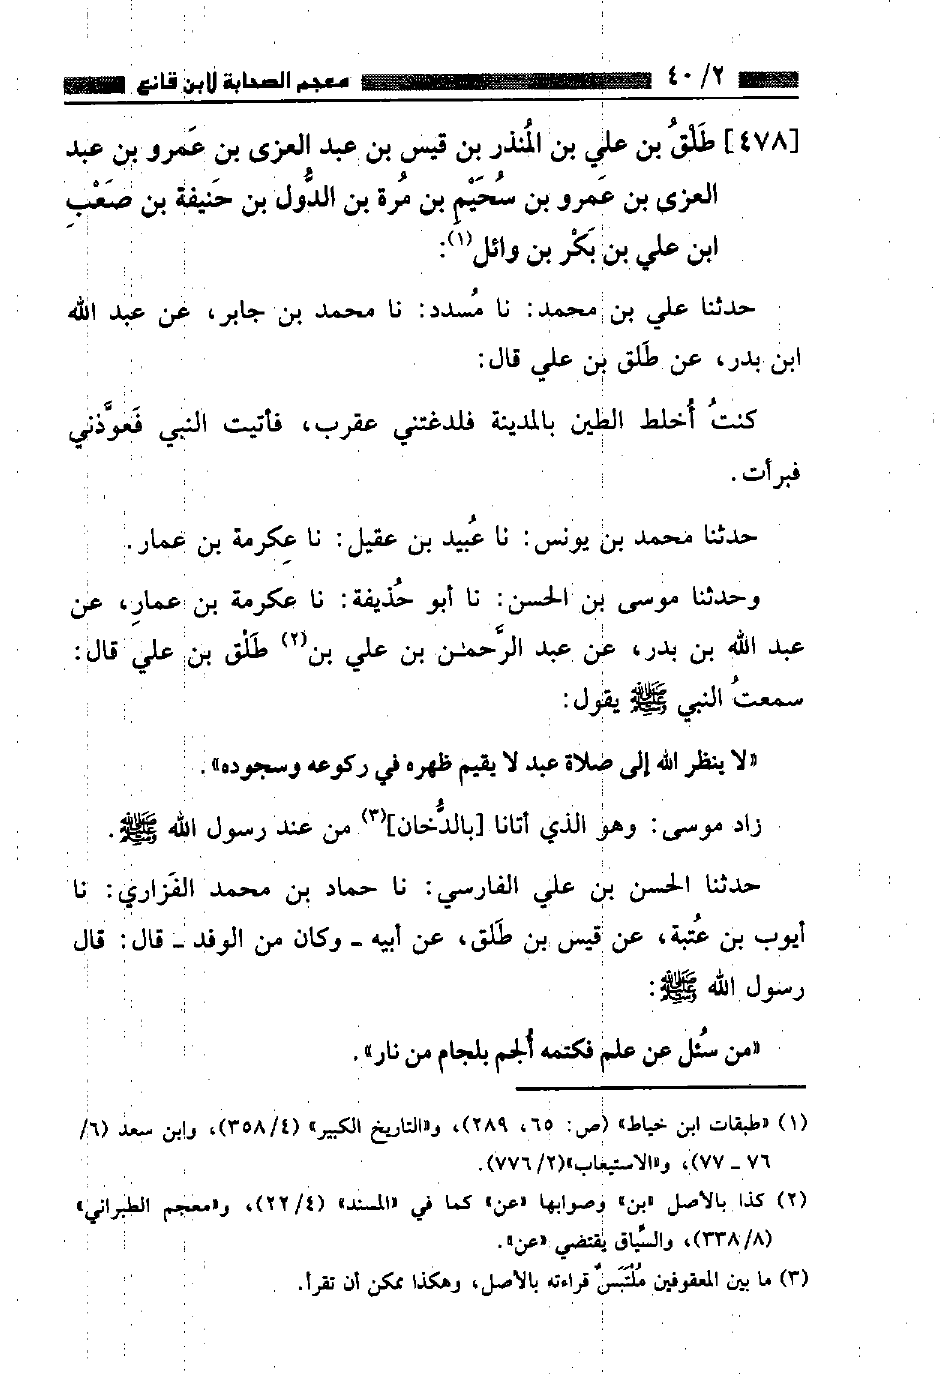 ٤٠/٢ معجم الصحابة لابن قانع
[٤٧٨] طَلْقُ بن علي بن المُنذر بن قيس بن عبد العزى بن عَمرو بن عبد
العزى بن عَمرو بن سُحَيْمِ بن مُرة بن الدُّول بن حَنيفة بن صَعْبِ
ابن علي بن بَكْر بن وائل(١):
حدثنا علي بن محمد: نا مُسدد: نا محمد بن جابر، عن عبد الله
ابن بدر، عن طَلق بن علي قال:
كنتُ أُخلط الطين بالمدينة فلدغتني عقرب، فأتيت النبي فَعوَّذني
فبرأت.
حدثنا محمد بن يونس: نا عُبيد بن عقيل: نا عِكرمة بن عمار.
وحدثنا موسى بن الحسن: نا أبو حُذيفة: نا عكرمة بن عمارِ، عن
عبد الله بن بدر، عن عبد الرَّحمٰن بن علي بن(٢) طَلْق بن علي قال:
سمعتُ النبي ﷺ يقول:
«لا ينظر الله إلى صلاة عبد لا يقيم ظهره في ركوعه وسجوده».
زاد موسى: وهو الذي أتانا [بالدُّخان](٣) من عند رسول الله ﷺ.
حدثنا الحسن بن علي الفارسي: نا حماد بن محمد الفَزاري: نا
أيوب بن عُتبة، عن قيس بن طَلق، عن أبيه ـ وكان من الوفد ـ قال: قال
رسول الله ﷺ:
«من سُئل عن علم فكتمه أُلجم بلجام من نار».
(١) «طبقات ابن خياط» (ص: ٦٥، ٢٨٩)، و«التاريخ الكبير» (٣٥٨/٤)، وابن سعد (٦/
٧٦ ـ ٧٧)، و«الاستيعاب»(٧٧٦/٢).
(٢) كذا بالأصل «بن» وصوابها «عن» كما في «المسند» (٢٢/٤)، و«معجم الطبراني»
(٣٣٨/٨)، والسِّياق يقتضي «عن».
(٣) ما بين المعقوفين مُلْتَبَسٌ قراءته بالأصل، وهكذا يمكن أن تقرأ.